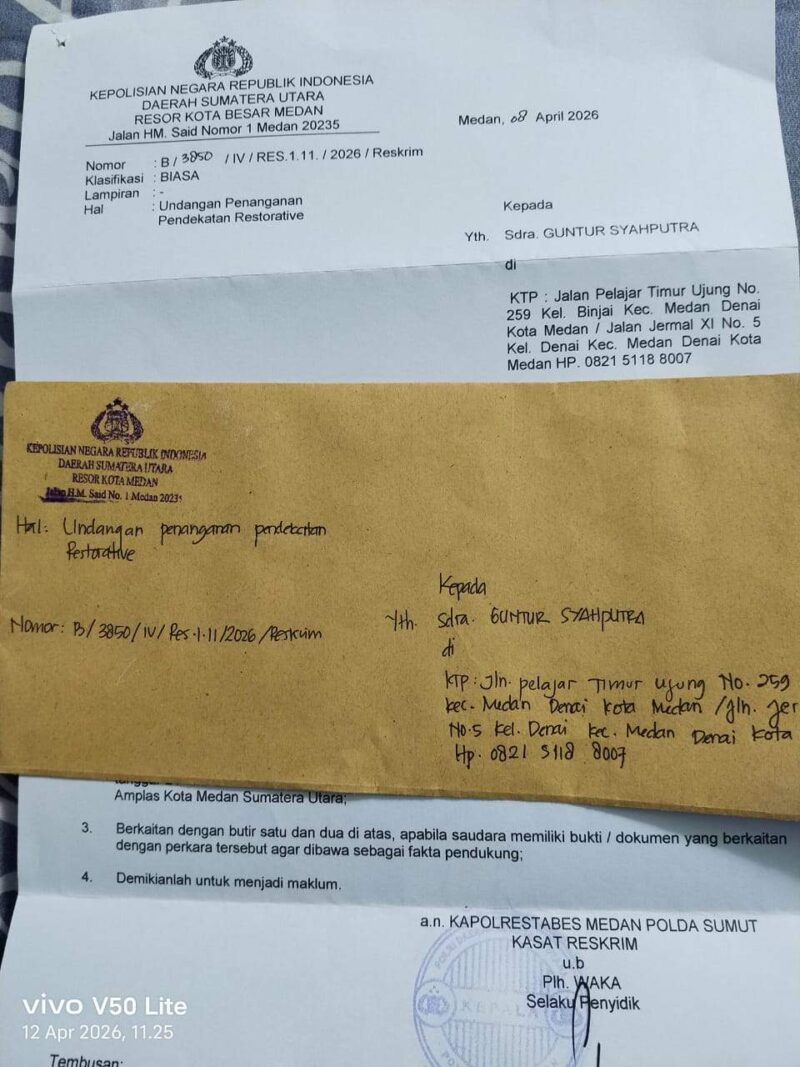 KEPOLISIAN NEGARA REPUBLIK INDONESIA
DAERAH SUMATERA UTARA
RESOR KOTA BESAR MEDAN
Jalan HM. Said Nomor 1 Medan 20235
Medan, 08 April 2026
Nomor : B / 3850 / IV / RES.1.11. / 2026 / Reskrim
Klasifikasi : BIASA
Lampiran : -
Hal : Undangan Penanganan
Pendekatan Restorative
Kepada
Yth. Sdra. GUNTUR SYAHPUTRA
di
KTP : Jalan Pelajar Timur Ujung No.
259 Kel. Binjai Kec. Medan Denai
Kota Medan / Jalan Jermal XI No. 5
Kel. Denai Kec. Medan Denai Kota
Medan HP. 0821 5118 8007
KEPOLISIAN NEGARA REPUBLIK INDONESIA
DAERAH SUMATERA UTARA
RESOR KOTA MEDAN
Jalan H.M. Said No. 1 Medan 20235
Hal: Undangan penanganan pendekatan
Restorative
Nomor: B/3850/IV/Res.1.11/2026/Reskrim
Kepada
Yth. Sdra. GUNTUR SYAHPUTRA
di
KTP: Jln. pelajar Timur Ujung No. 259
kec. Medan Denai Kota Medan /Jln. Jer
No.5 Kel. Denai Kec. Medan Denai Kota
Hp. 0821 5118 8007
Amplas Kota Medan Sumatera Utara;
3. Berkaitan dengan butir satu dan dua di atas, apabila saudara memiliki bukti / dokumen yang berkaitan
dengan perkara tersebut agar dibawa sebagai fakta pendukung;
4. Demikianlah untuk menjadi maklum.
a.n. KAPOLRESTABES MEDAN POLDA SUMUT
KASAT RESKRIM
u.b
Plh. WAKA
Selaku Penyidik
KEPALA
Tembusan:
vivo V50 Lite
12 Apr 2026, 11.25